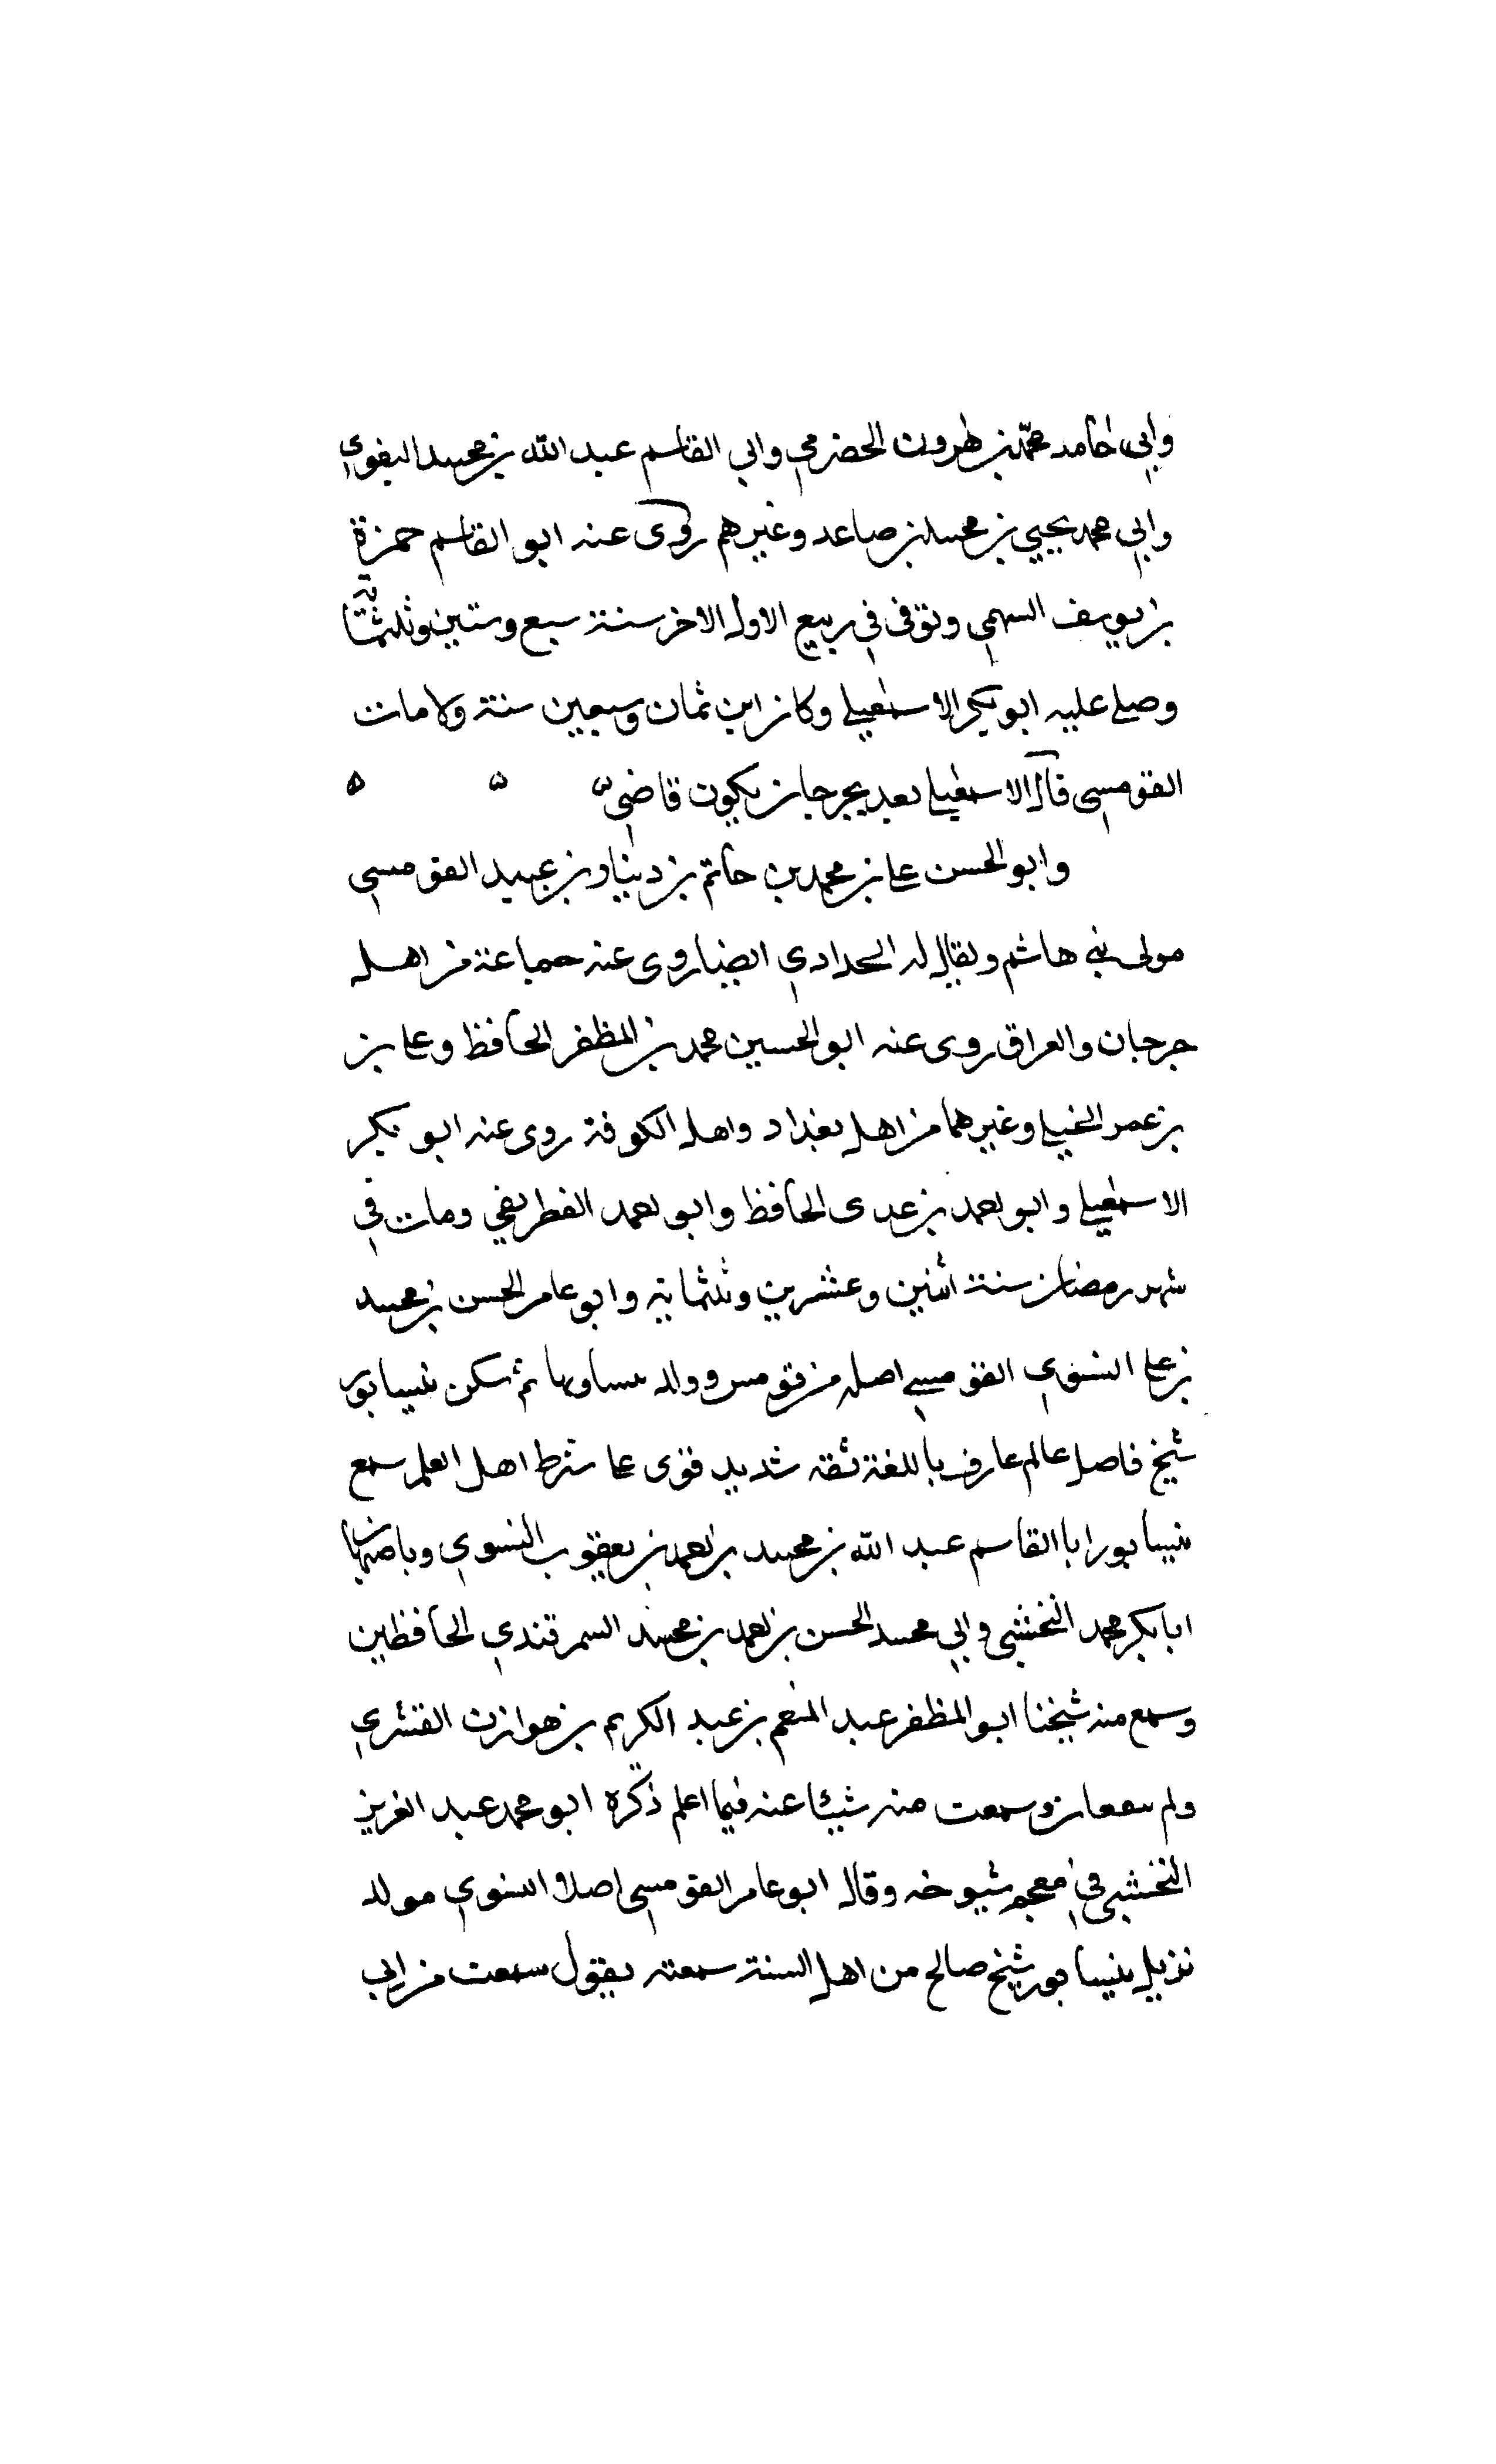 وابي حامد محمد بن هرون الحضرمي وابي القاسم عبد الله بن محمد البغوي
وابي محمد يحيى بن محمد بن صاعد وغيرهم روى عنه ابو القاسم حمزة
بن يوسف السهمي وتوفى في ربيع الاول الاخر سنة سبع وستين وثلثمائة
وصلى عليه ابو بكر الاسمعيلي وكان ابن ثمان وسبعين سنة ولما مات
القومسي قال الاسمعيلي بعد بجرجان يكون قاضي
وابو الحسن علي بن محمد بن حاتم بن دينار بن عبيد القومسي
مولى بني هاشم ويقال له الحدادي ايضا روى عنه جماعة من اهل
جرجان والعراق روى عنه ابو الحسين محمد بن المظفر الحافظ وعلي بن
بن عمر وغيرهما من اهل بغداد واهل الكوفة روى عنه ابو بكر
الاسمعيلي وابو احمد بن عدى الحافظ وابو احمد الغطريفي ومات في
شهر رمضان سنة اثنين وعشرين وثلثماية وابو عامر الحسن بن محمد
بن علي النسوي القومسي اصله من قومس وولد بنسا وبها ثم سكن نيسابور
شيخ فاضل عالم عارف باللغة ثقة شديد قوى على شرط اهل العلم سمع
بنيسابور ابا القاسم عبد الله بن محمد بن احمد بن يعقوب النسوي وباصبهان
ابا بكر محمد النخشبي وابي محمد الحسن بن احمد بن محمد السمرقندي الحافظين
وسمع منه شيخنا ابو المظفر عبد المنعم بن عبد الكريم بن هوازن القشري
ولم وسمعت منه شيئا عنه فيما اعلم ذكره ابو محمد عبد العزيز
النخشبي في معجم شيوخه وقال ابو عامر القومسي اصلا النسوي مولد
نزيل نيسابور شيخ صالح من اهل السنة سمعته يقول سمعت من ابي